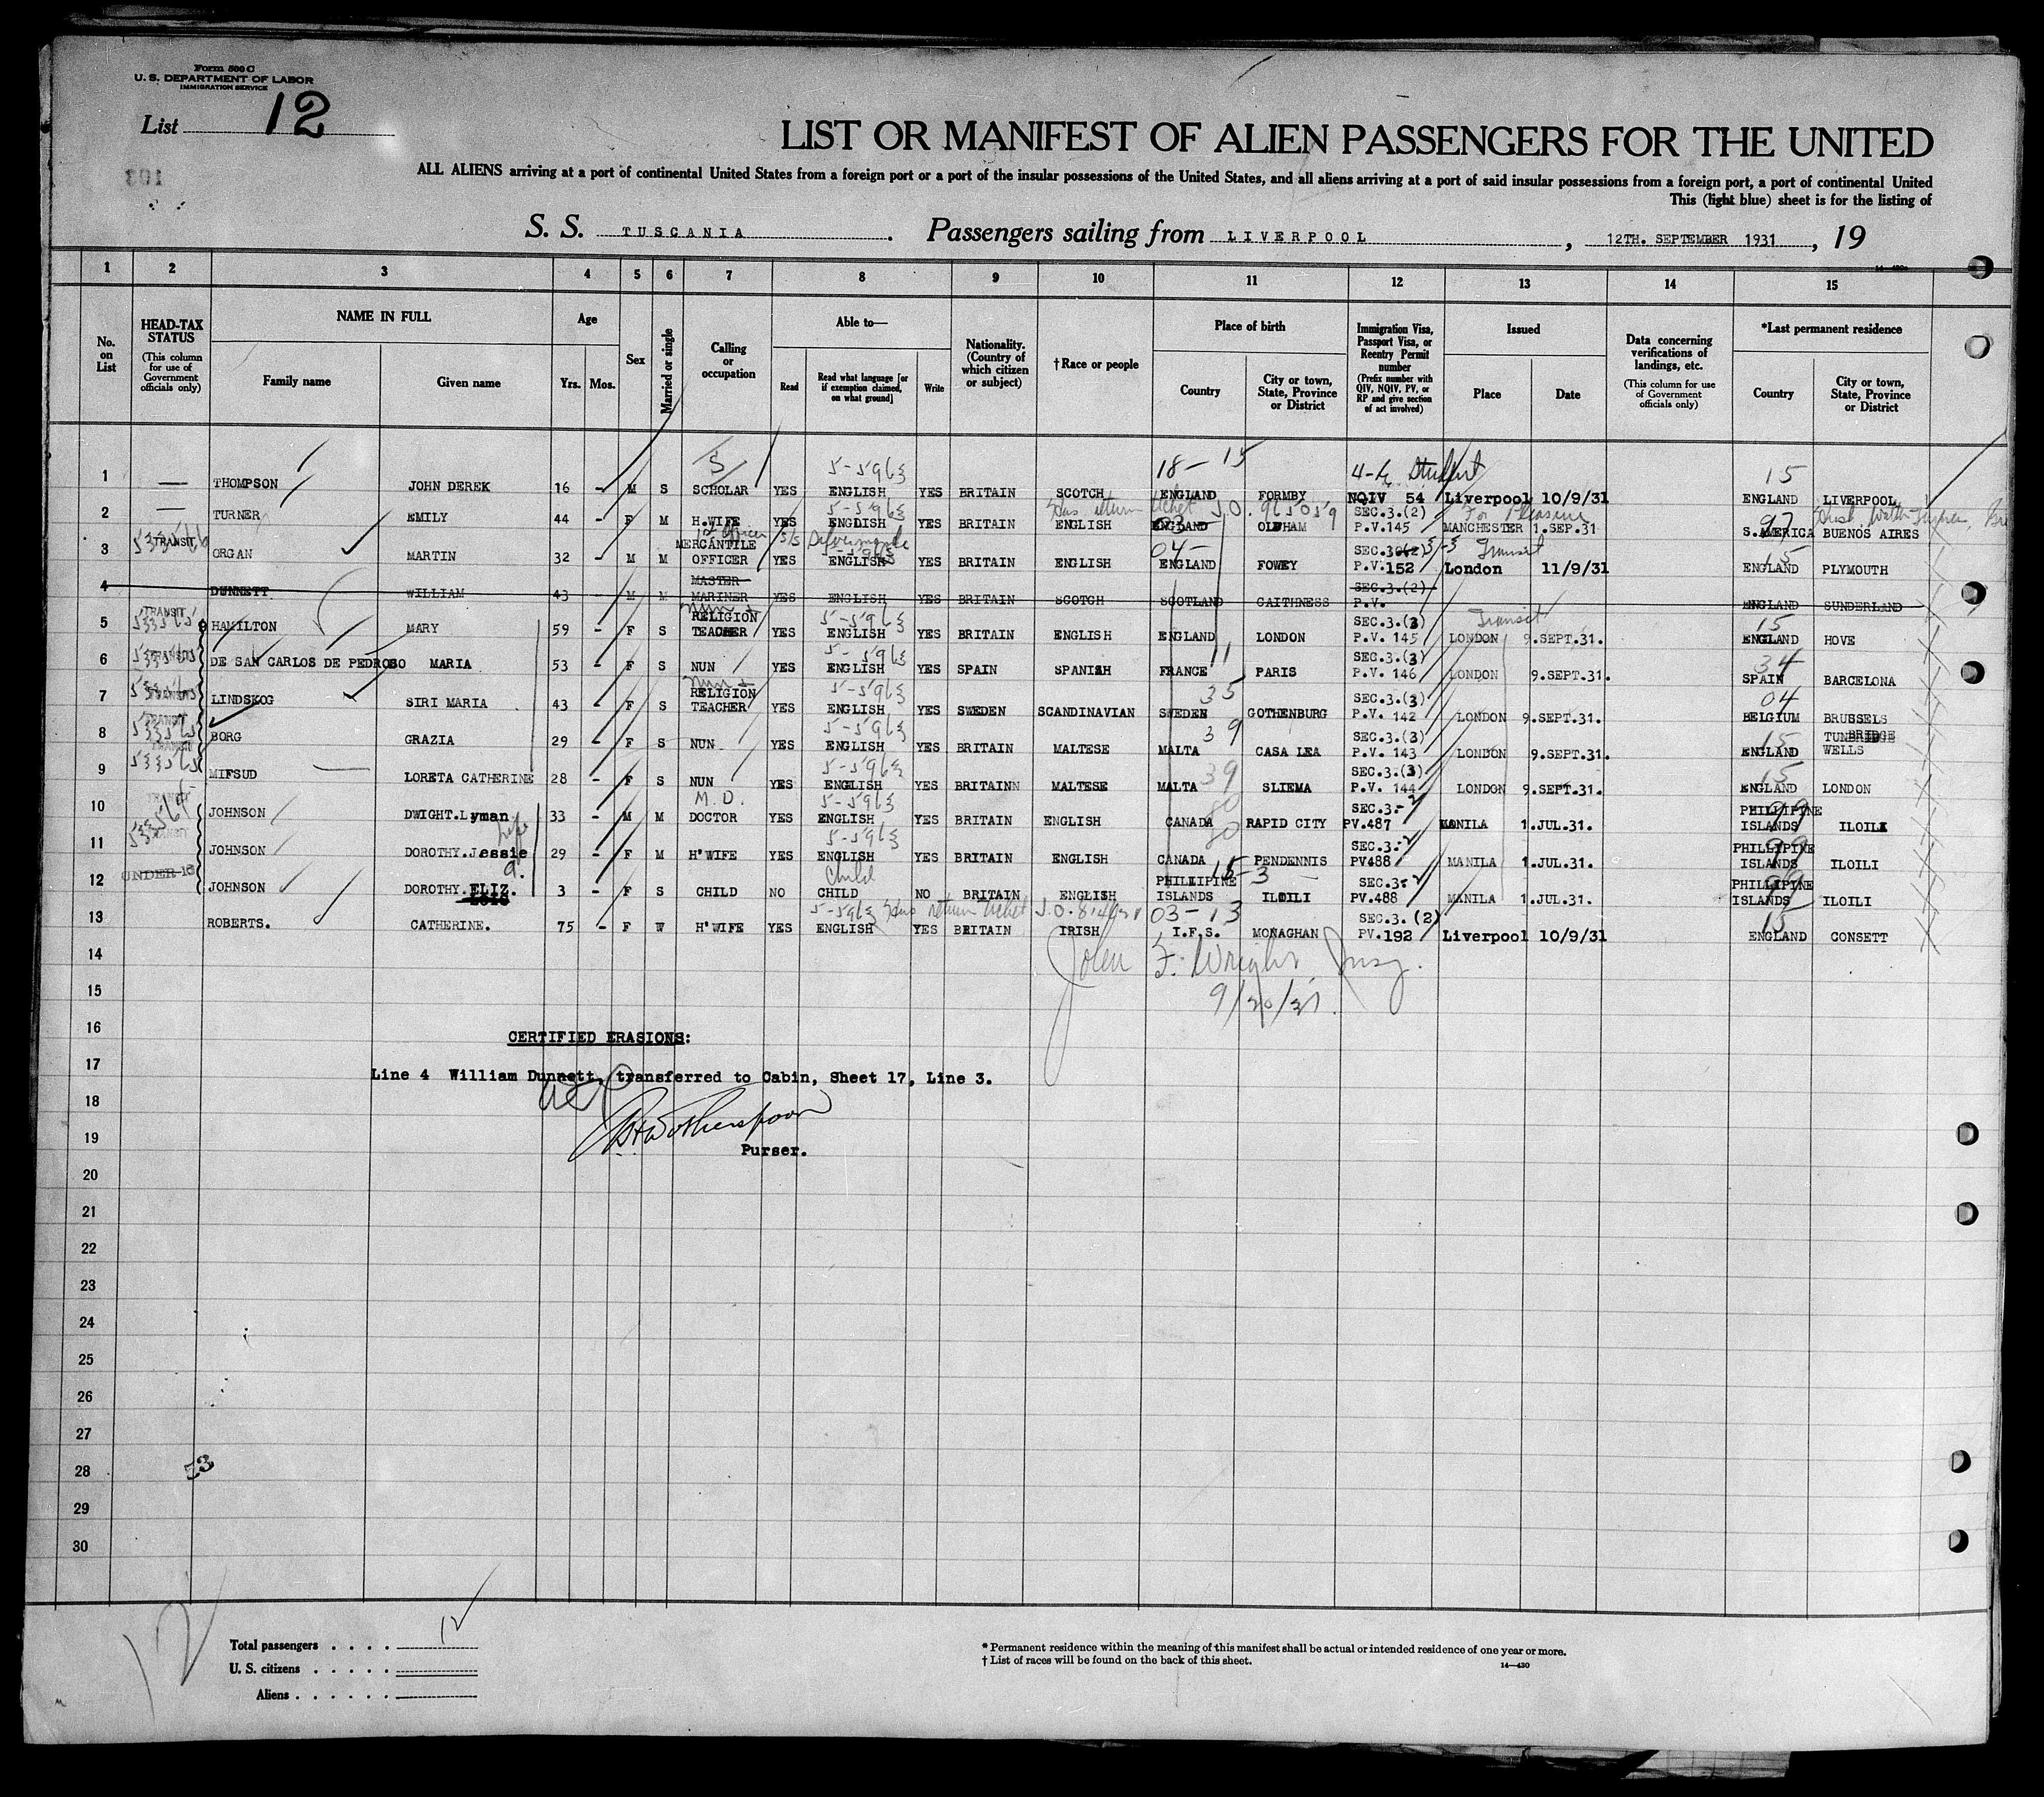 Form 500 C
U. S. DEPARTMENT OF LABOR
IMMIGRATION SERVICE
List 12
LIST OR MANIFEST OF ALIEN PASSENGERS FOR THE UNITED
ALL ALIENS arriving at a port of continental United States from a foreign port or a port of the insular possessions of the United States, and all aliens arriving at a port of said insular possessions from a foreign port, a port of continental United
This (light blue) sheet is for the listing of
S. S. TUSCANIA. Passengers sailing from LIVERPOOL, 12TH. SEPTEMBER 1931, 19
1 2 3 4 5 6 7 8 9 10 11 12 13 14 15
No. on List
HEAD-TAX STATUS (This column for use of Government officials only)
NAME IN FULL
Family name
Given name
Age
Yrs. Mos.
Sex
Married or single
Calling or occupation
Able to—
Read
Read what language [or if exemption claimed, on what ground]
Write
Nationality. (Country of which citizen or subject)
†Race or people
Place of birth
Country
City or town, State, Province or District
Immigration Visa, Passport Visa, or Reentry Permit number (Prefix number with QIV, NQIV, PV, or RP and give section of act involved)
Issued
Place
Date
Data concerning verifications of landings, etc. (This column for use of Government officials only)
*Last permanent residence
Country
City or town, State, Province or District
5-5963 18-15 4-E Student 15
1 — THOMPSON JOHN DEREK 16 - M S SCHOLAR YES ENGLISH YES BRITAIN SCOTCH ENGLAND FORMBY NQIV 54 Liverpool 10/9/31 ENGLAND LIVERPOOL
5-5963 Has return ticket SEC.3.(2) For Pleasure 97
2 — TURNER EMILY 44 - F M H.WIFE YES ENGLISH YES BRITAIN ENGLISH ENGLAND OLDHAM P.V.145 MANCHESTER 1.SEP.31 S.AMERICA BUENOS AIRES
TRANSIT 5-5963 04- SEC.3(2) 3-3 Transit 15
3 ORGAN MARTIN 32 - M M MERCANTILE OFFICER YES ENGLISH YES BRITAIN ENGLISH ENGLAND FOWEY P.V.152 London 11/9/31 ENGLAND PLYMOUTH
4 DUNNETT WILLIAM 43 M M MASTER MARINER YES ENGLISH YES BRITAIN SCOTCH SCOTLAND CAITHNESS SEC.3.(2) P.V. ENGLAND SUNDERLAND
TRANSIT Nun + 5-5963 Transit 15
5 HAMILTON MARY 59 - F S RELIGION TEACHER YES ENGLISH YES BRITAIN ENGLISH ENGLAND LONDON SEC.3.(3) P.V. 145 LONDON 9.SEPT.31. ENGLAND HOVE
5-5963 11 34
6 DE SAN CARLOS DE PEDROSO MARIA 53 - F S NUN YES ENGLISH YES SPAIN SPANISH FRANCE PARIS SEC.3.(3) P.V. 146 LONDON 9.SEPT.31. SPAIN BARCELONA
Nun + 5-5963 35 04
7 LINDSKOG SIRI MARIA 43 - F S RELIGION TEACHER YES ENGLISH YES SWEDEN SCANDINAVIAN SWEDEN GOTHENBURG SEC.3.(3) P.V. 142 LONDON 9.SEPT.31. BELGIUM BRUSSELS
TRANSIT 5-5963 39 15
8 BORG GRAZIA 29 - F S NUN YES ENGLISH YES BRITAIN MALTESE MALTA CASA LEA SEC.3.(3) P.V. 143 LONDON 9.SEPT.31. ENGLAND TUNBRIDGE WELLS
TRANSIT 5-5963 39 15
9 MIFSUD LORETA CATHERINE 28 - F S NUN YES ENGLISH YES BRITAINN MALTESE MALTA SLIEMA SEC.3.(3) P.V. 144 LONDON 9.SEPT.31. ENGLAND LONDON
M.D. 5-5963 80 99
10 JOHNSON DWIGHT.Lyman 33 - M M DOCTOR YES ENGLISH YES BRITAIN ENGLISH CANADA RAPID CITY SEC.3.-2 PV.487 MANILA 1.JUL.31. PHILLIPINE ISLANDS ILOILI
wife 5-5963 80 99
11 JOHNSON DOROTHY.Jessie 29 - F M H'WIFE YES ENGLISH YES BRITAIN ENGLISH CANADA PENDENNIS SEC.3.-2 PV488 MANILA 1.JUL.31. PHILLIPINE ISLANDS ILOILI
UNDER 16 d. Child 15-3 99
12 JOHNSON DOROTHY.ELIZ. 3 - F S CHILD NO CHILD NO BRITAIN ENGLISH PHILLIPINE ISLANDS ILOILI SEC.3-2 PV.488 MANILA 1.JUL.31. PHILLIPINE ISLANDS ILOILI
5-5963 Has return ticket 03-13 15
13 ROBERTS. CATHERINE. 75 - F W H'WIFE YES ENGLISH YES BRITAIN IRISH I.F.S. MONAGHAN SEC.3.(2) PV.192 Liverpool 10/9/31 ENGLAND CONSETT
14 John F. Wright, Insp.
15 9/20/31.
16 CERTIFIED ERASIONS:
17 Line 4 William Dunnett, transferred to Cabin, Sheet 17, Line 3.
18
19 Purser.
20
21
22
23
24
25
26
27
28 53
29
30
12
Total passengers . . . . 12
U. S. citizens . . . . .
Aliens . . . . . .
* Permanent residence within the meaning of this manifest shall be actual or intended residence of one year or more.
† List of races will be found on the back of this sheet.
14—430